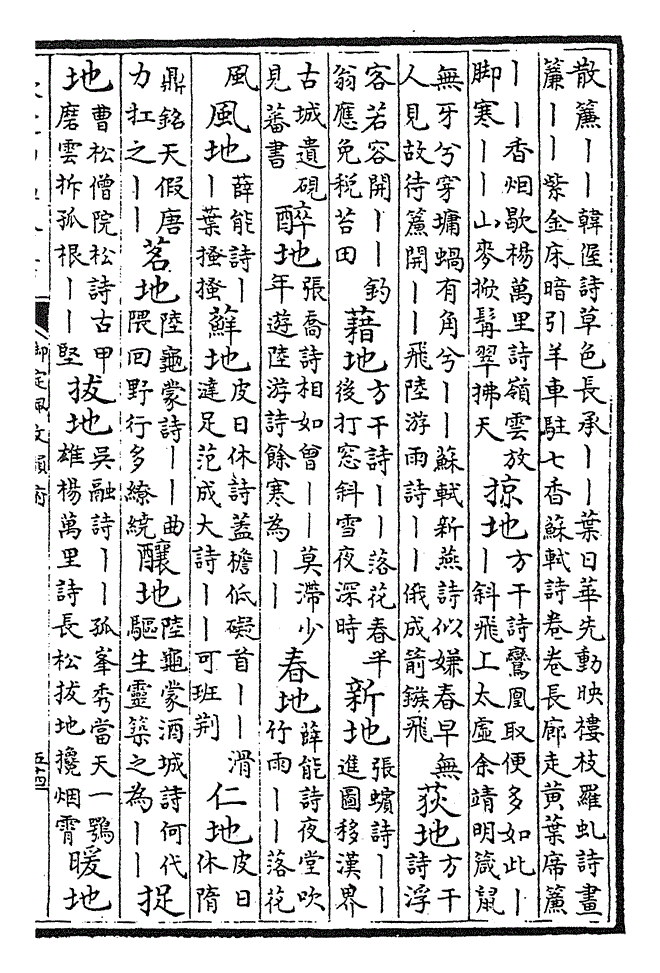 散簾丨丨韓偓詩草色長承丨丨葉日華先動映樓枝羅虬詩畫
簾丨丨紫金床暗引羊車駐七香蘇軾詩卷卷長廊走黄葉席簾
丨丨香烟歇楊萬里詩嶺雲放
脚寒丨丨山麥掀髯翠拂天
掠地
方干詩鸞凰取便多如此丨
丨斜飛上太虛余靖明箴鼠
無牙兮穿墉蝸有角兮丨丨蘇軾新燕詩似嫌春早無
人見故待簾開丨丨飛陸游雨詩丨丨俄成箭鏃飛
荻地
方干
詩浮
容若容開丨丨釣
翁應免税苔田
藉地
方干詩丨丨落花春半
後打窓斜雪夜深時
新地
張蠙詩丨丨
進圖移漢界
古城遺硯
見蕃書
醉地
張喬詩相如曾丨丨莫滯少
年遊陸游詩餘寒為丨丨
春地
薛能詩夜堂吹
竹雨丨丨落花
風
風地
薛能詩丨
丨葉搔搔
蘚地
皮日休詩蓋檐低礙首丨丨滑
達足范成大詩丨丨可班荆
仁地
皮日
休隋
鼎銘天假唐
力扛之丨丨
茗地
陸龜蒙詩丨丨曲
隈回野行多繚繞
釀地
陸龜蒙酒城詩何代
驅生靈築之為丨丨
捉
地
曹松僧院松詩古甲
磨雲拆孤根丨丨堅
拔地
吳融詩丨丨孤峯秀當天一鶚
雄楊萬里詩長松拔地攙烟霄
暖地
御定佩文韻府
五十四